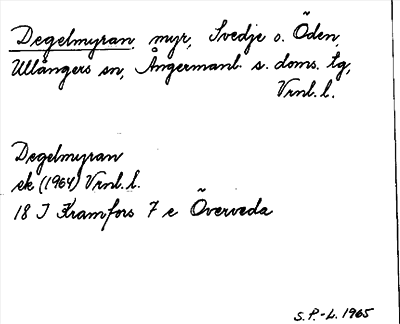 Degelmyran, myr, Svedje o. Öden,
Ullångers sn, Ångermanl. s. doms. tg,
Vrnl. l.
Degelmyran
ek (1964) Vrnl. l.
18 J Kramfors 7 e Överveda
S.P.-L. 1965